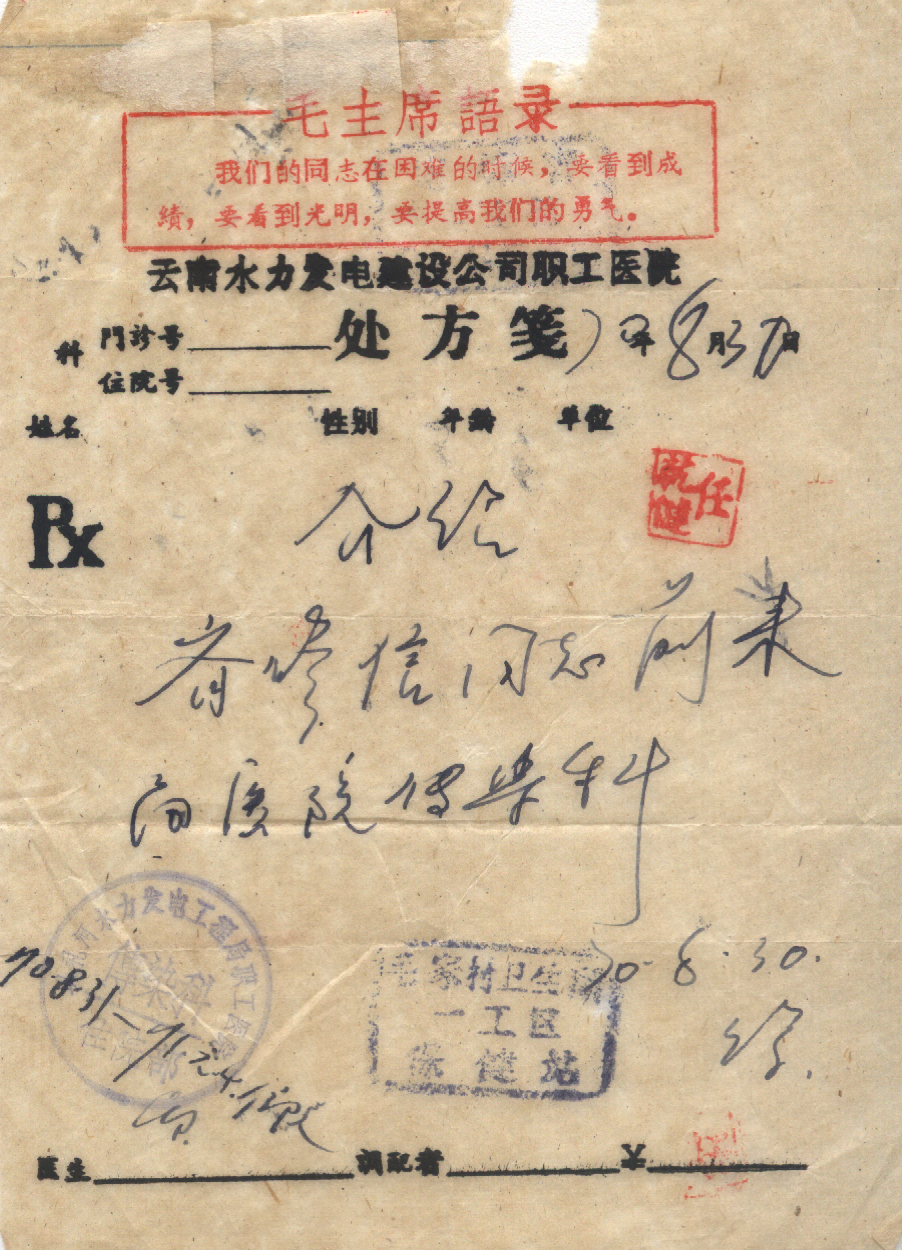 毛主席語录
我们的同志在困难的时候，要看到成
績，要看到光明，要提高我们的勇气。
云南水力发电建设公司职工医院
处方笺
70年8月30日
科
門诊号
住院号
姓名 性别 年龄 单位
任
Rx
介绍
信同志前来
医院传染科
水力发电工程局职工医院
传染科
住院部
70.8.31—
毛家村卫生
一工区
保健站
70.8.30.
医生 调配者 ¥